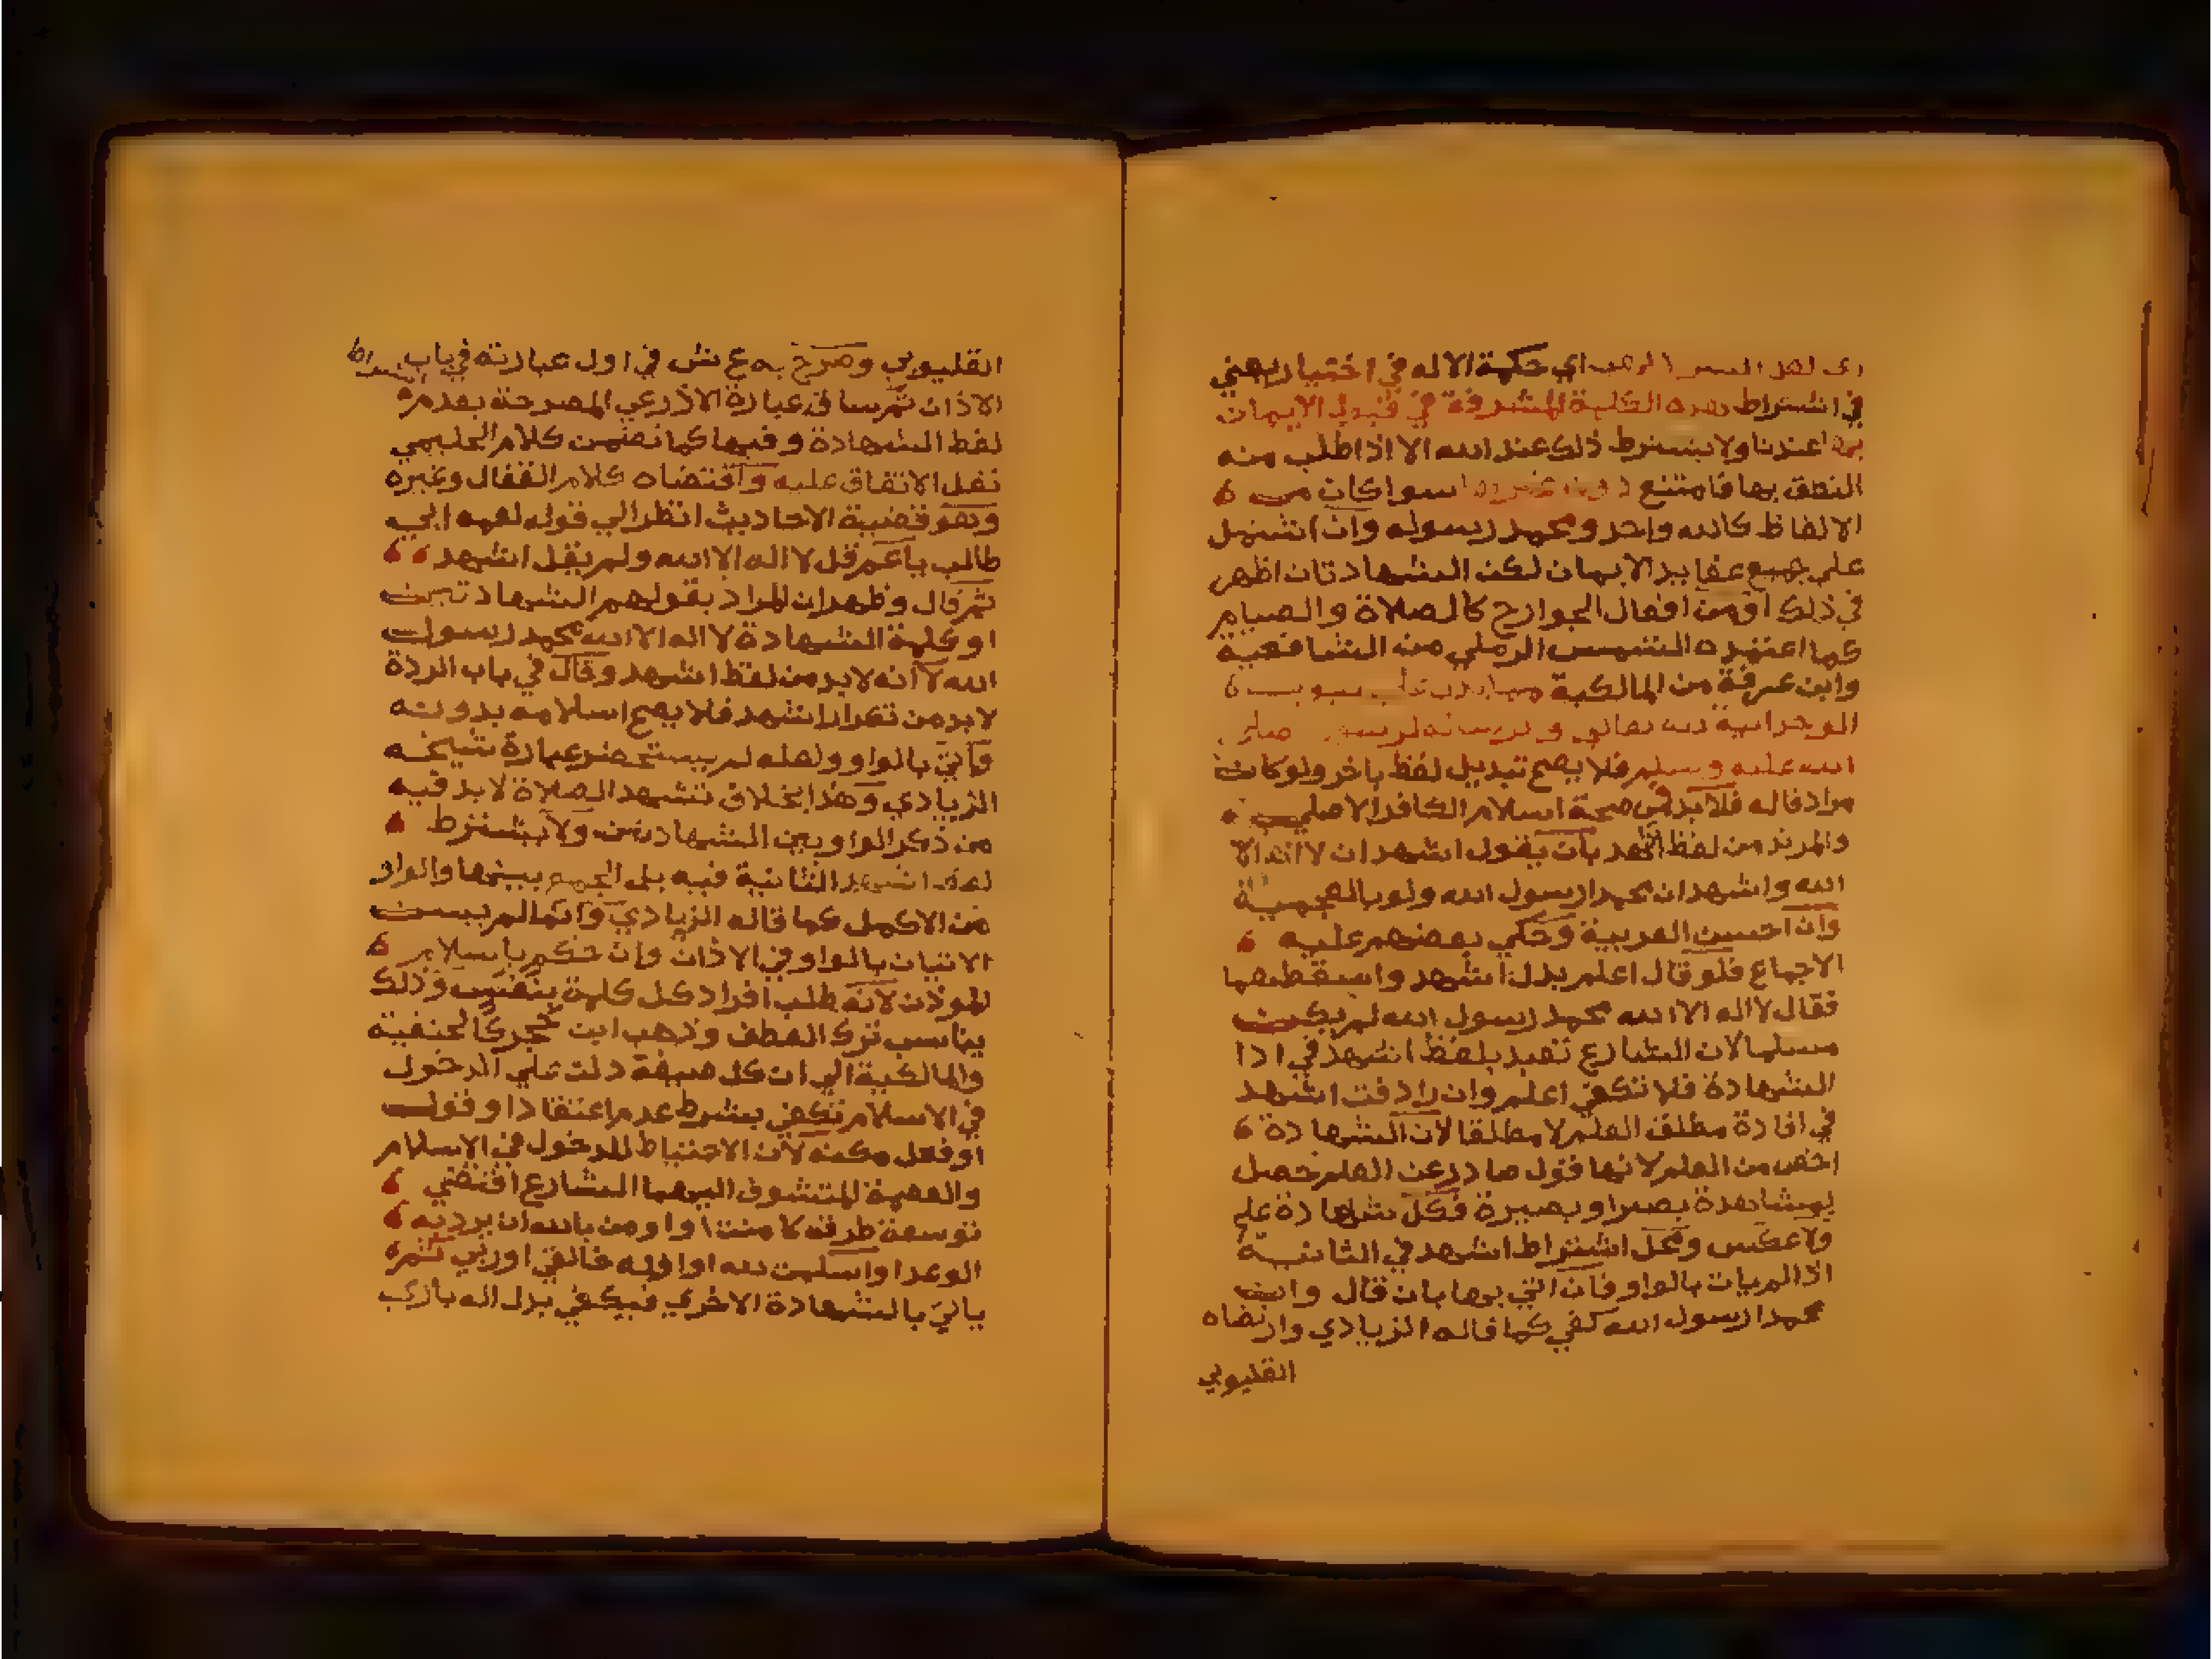 اي حكمة الاله في اختيار يعني
في اشتراط هذه الكلمة المشرفة في قبول الايمان
بها عندنا ولا يشترط ذلك عند الله الا اذا طلب منه
النطق بها فامتنع دون غيرها سوا كان من
الالفاظ كالله واحد ومحمد رسوله وان اشتمل
علي جميع عقايد الايمان لكن الشهادتان اظهر
في ذلك او من افعال الجوارح كالصلاة والصيام
كما اعتمده الشمس الرملي من الشافعية
وابن عرفة من المالكية
الوحدانية لله تعالي و صلي
الله عليه وسلم فلا يصح تبديل لفظ باخر ولو كان
مرادفا له فلا بد في صحة اسلام الكافر الاصلي
والمرتد من لفظ اشهد بان يقول اشهد ان لا اله الا
الله واشهد ان محمدا رسول الله ولو بالعجمية
وان احسن العربية وحكي بعضهم عليه
الاجماع فلو قال اعلم بدل اشهد واسقطهما
فقال لا اله الا الله محمد رسول الله لم يكن
مسلما لان الشارع تعبد بلفظ اشهد في ادا
الشهادة فلا تكفي اعلم وان رادفت اشهد
في افادة مطلق العلم لا مطلقا لان الشهادة
اخص من العلم لانها قول صادر عن العلم حصل
بمشاهدة بصر او بصيرة فكل شهادة علم
ولا عكس ومحل اشتراط اشهد في الثانية
اذا لم يات بالواو فان اتي بها بان قال وان
محمدا رسول الله كفي كما قاله الزيادي وارتضاه
القليوبي
القليوبي وصرح به ع ش في اول عبارته في باب
الاذان ثم ساق عبارة الاذرعي المصرحة بعدم
لفظ الشهادة وفيها كما تضمن كلام الحليمي
نقل الاتفاق عليه واقتضاه كلام القفال وغيره
وهو قضية الاحاديث انظر الي قوله لعمه ابي
طالب يا عم قل لا اله الا الله ولم يقل اشهد
ثم قال وظهر ان المراد بقولهم الشهادتين
او كلمة الشهادة لا اله الا الله محمد رسول
الله لا انه لا بد من لفظ اشهد وقال في باب الردة
لا بد من تكرار اشهد فلا يصح اسلامه بدونه
واتي بالواو ولعله لم يستحضر عبارة شيخه
الزيادي وهذا بخلاف تشهد الصلاة لا بد فيه
من ذكر الواو بين الشهادتين ولا يشترط
لفظ اشهد الثانية فيه بل الجمع بينها والواو
من الاكمل كما قاله الزيادي وانما لم يسن
الاتيان بالواو في الاذان وان حكم باسلام
المؤذن لانه طلب افراد كل كلمة بنفس وذلك
يناسب ترك العطف وذهب ابن حجر كالحنفية
والمالكية الي ان كل صيغة دلت علي الدخول
في الاسلام تكفي بشرط عدم اعتقاد او قول
او فعل مكنه لان الاحتياط للدخول في الاسلام
والعصمة المتشوف اليهما الشارع اقتضي
توسعة طرقه كامنت او اومن بالله ان برد به
الوعد او اسلمت لله او الله خالقي او ربي ثم
ياتي بالشهادة الاخري فيكفي بدل اله باري